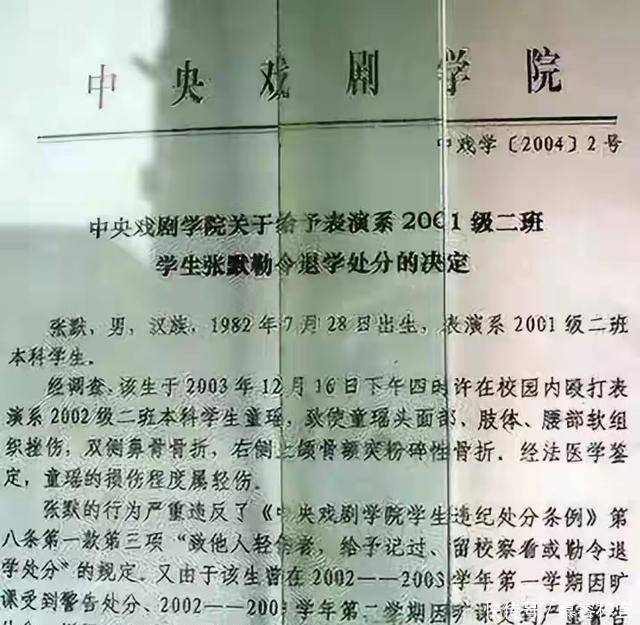 中央戏剧学院
中戏学〔2004〕2号
中央戏剧学院关于给予表演系2001级二班
学生张默勒令退学处分的决定
张默，男，汉族，1982年7月28日出生，表演系2001级二班
本科学生。
经调查，该生于2003年12月16日下午四时许在校园内殴打表
演系2002级二班本科学生童瑶，致使童瑶头面部、肢体、腰部软组
织挫伤；双侧鼻骨骨折，右侧上颌骨额突粉碎性骨折。经法医学鉴
定，童瑶的损伤程度属轻伤。
张默的行为严重违反了《中央戏剧学院学生违纪处分条例》第
八条第一款第三项“致他人轻伤者，给予记过、留校察看或勒令退
学处分”的规定。又由于该生曾在2002——2003学年第一学期因旷
课受到警告处分、2002——2003学年第二学期因旷课受到严重警告